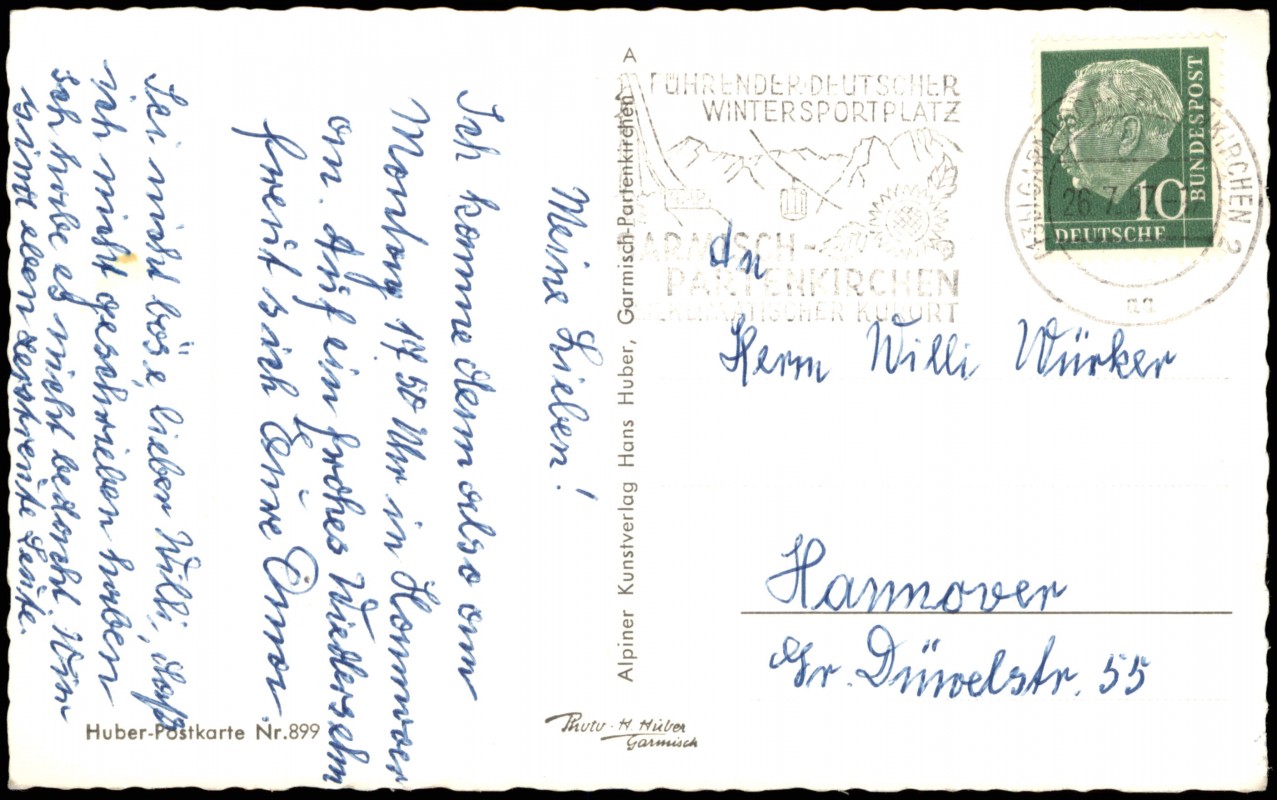 Meine Lieben!
Ich komme denn also am
Montag 17 50 Uhr in Hannover
an. Auf ein frohes Wiedersehn
freut sich Eure Anna.
Sei nicht böse, lieber Willi, daß
ich nicht geschrieben haben
ich habe es nicht bedacht. Wir
sind eben zerstreute Leute.
Huber-Postkarte Nr.899
A
Alpiner Kunstverlag Hans Huber, Garmisch-Partenkirchen
Photo-H. Huber
Garmisch
FÜHRENDER DEUTSCHER
WINTERSPORTPLATZ
GARMISCH-
PARTENKIRCHEN
HEILKLIMATISCHER KURORT
GARMISCH-PARTENKIRCHEN 2
26.7.
aa
10
DEUTSCHE
BUNDESPOST
An
Herrn Willi Würker
Hannover
Gr. Düwelstr. 55